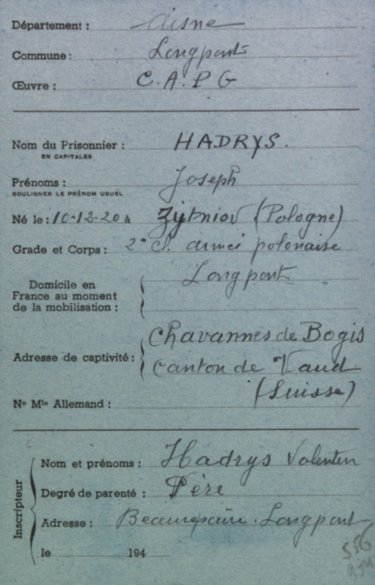 Département : Aisne
Commune : Longpont
Œuvre : C.A.P.G
Nom du Prisonnier : HADRYS.
EN CAPITALES
Prénoms : Joseph
SOULIGNER LE PRÉNOM USUEL
Né le : 10-12-20 à Zytniov (Pologne)
Grade et Corps : 2e cl. armée polonaise
Domicile en
France au moment
de la mobilisation : Longpont
Chavannes de Bogis
Adresse de captivité : Canton de Vaud
(Suisse)
No Mle Allemand :
Inscripteur
Nom et prénoms : Hadrys Valentin
Degré de parenté : Père
Adresse : Beaurepaire. Longpont
le 194
556